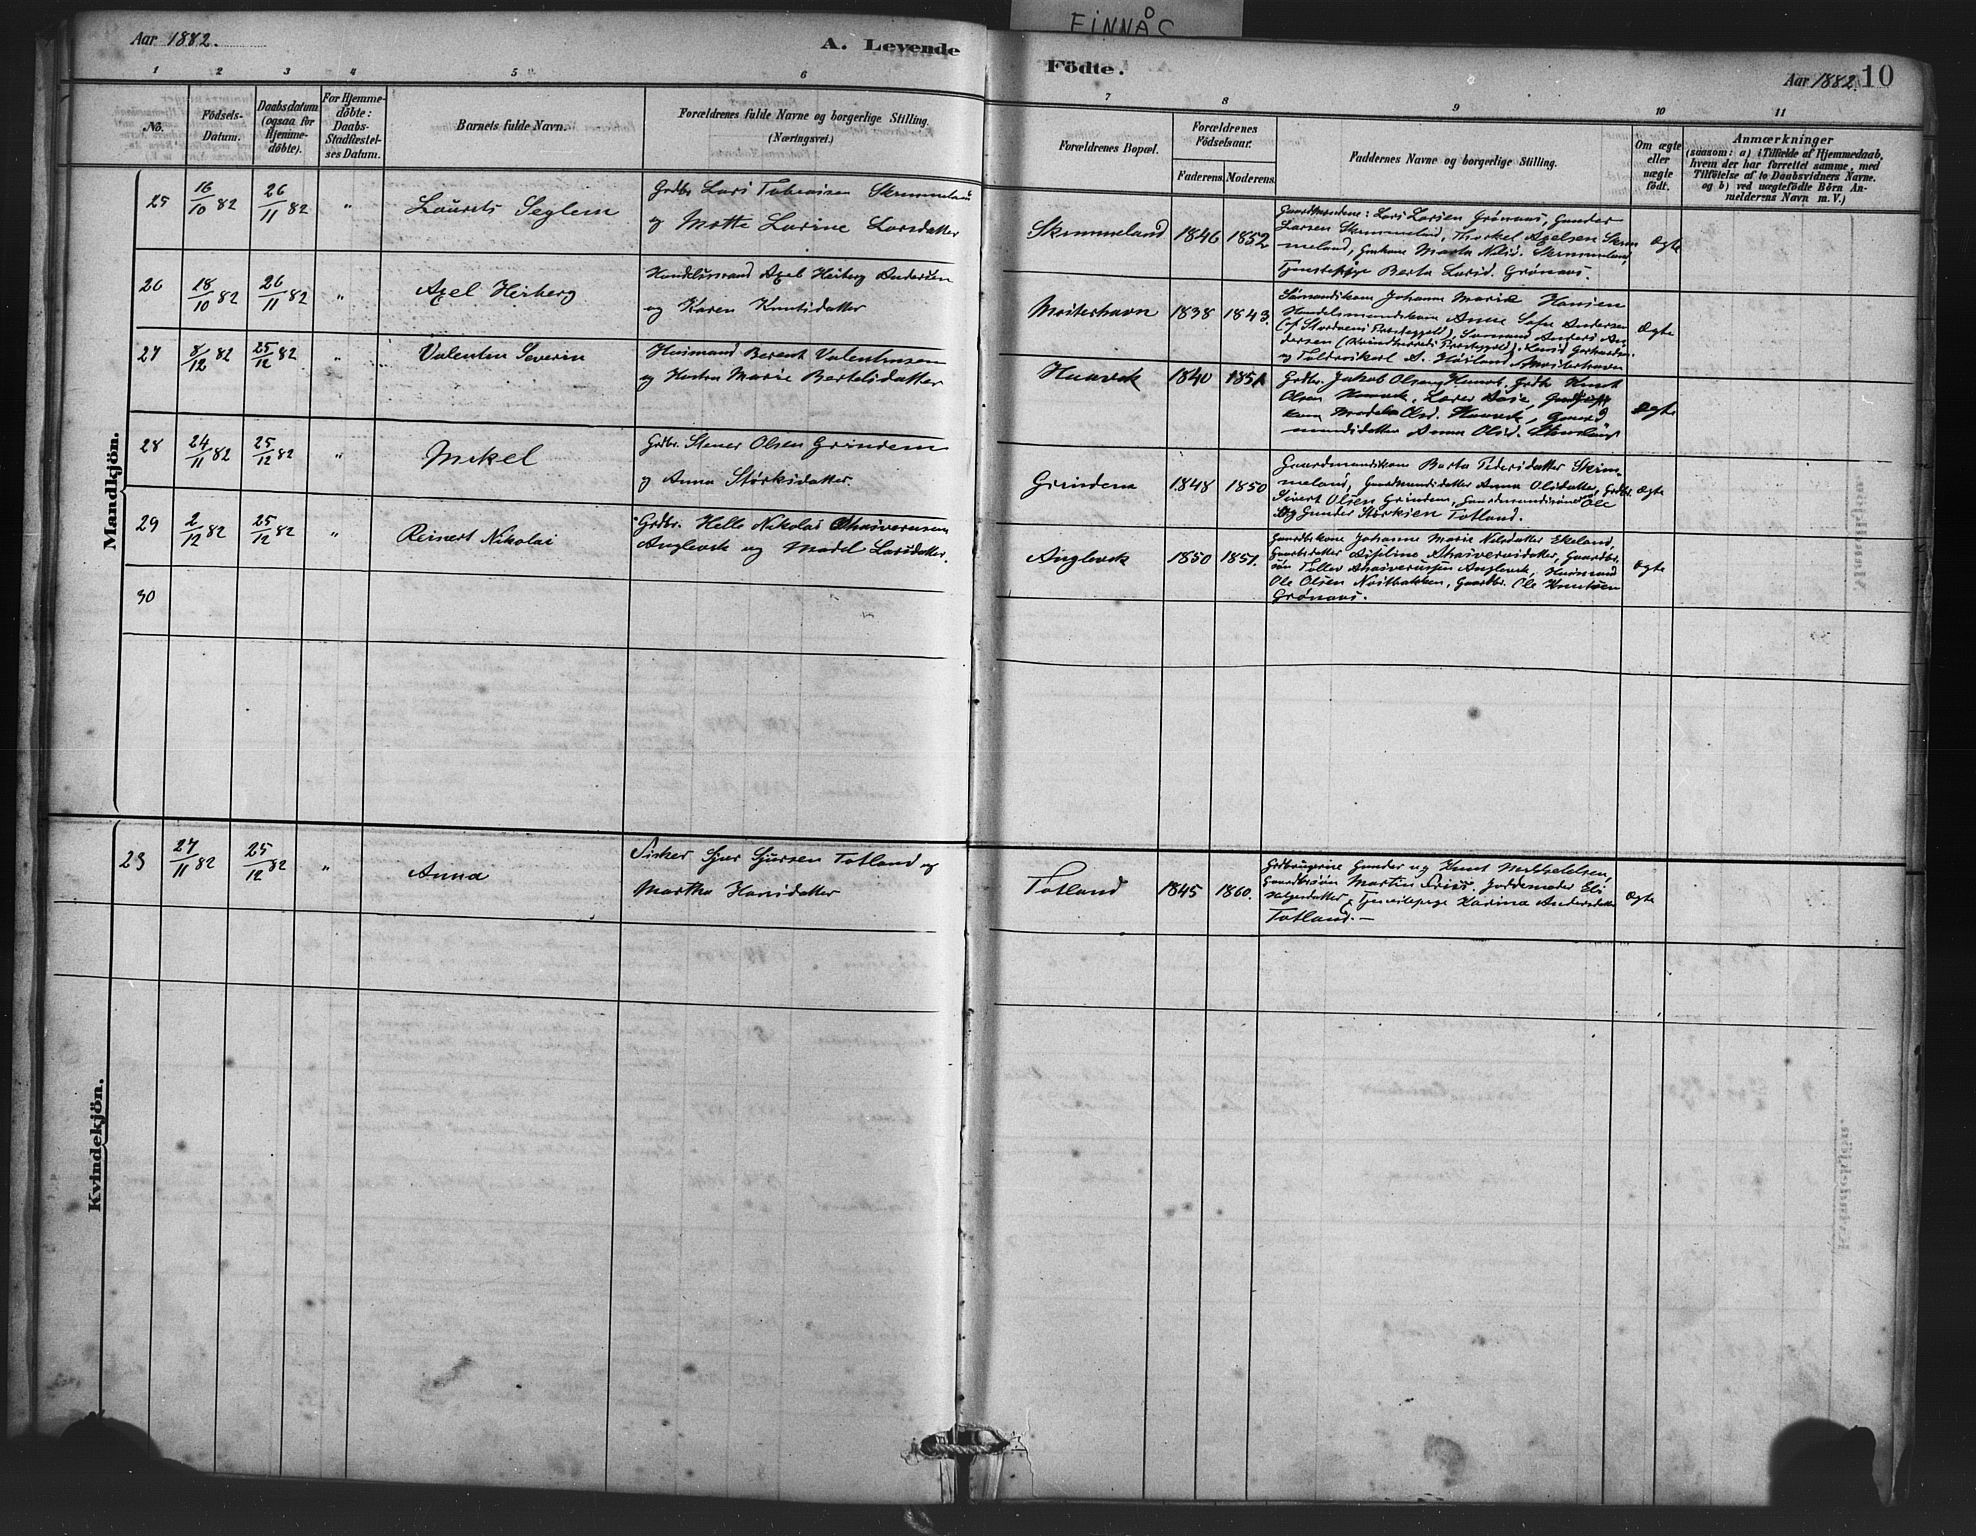 FINNÅS
Aar 1882.
A. Levende
Födte.
Aar 1882. 10
1 2 3 4 5 6 7 8 9 10 11
No.
Födsels-
Datum.
Daabsdatum
(ogsaa for
Hjemme-
döbte).
For Hjemme-
döbte:
Daabs-
Stadfæstel-
ses Datum.
Barnets fulde Navn.
Forældrenes fulde Navne og borgerlige Stilling.
(Næringsvei.)
Forældrenes Bopæl.
Forældrenes
Födselsaar.
Faderens. Moderens.
Faddernes Navne og borgerlige Stilling.
Om ægte
eller
uægte
födt.
Anmærkninger
(saasom: a) i Tilfælde af Hjemmedaab,
hvem der har forrettet samme, med
Tilföielse af to Daabsvidners Navne.
og b) ved uægtefödte Börn An-
melderens Navn m. V.)
Mandkjön.
25 16/10 82 26/11 82 " Laurits Seglem
Grdbr Lars Tobiasen Skimmeland
og Mette Larine Larsdatter
Skimmeland 1846 1852
Gaardmændene: Lars Larsen Grønaas, Gunder
Larsen Skimmeland, Thorkel Axelsen Skim
meland, Gmkone Marta Nilsd. Skimmeland,
Tjenestepige Berta Larsd. Grønaas.
Ægte
26 18/10 82 26/11 82 " Axel Heiberg
Handelsmand Axel Heiberg Andersen
og Karen Knutsdatter
Mosterhavn 1838 1843.
Sømandskone Johanne Marie Hansen
Handelsmandskone Anne Sofie Andersen
(af Stordøens Præstegjeld), Sømand Anders An-
dersen
og A. Høiland Mosterhavn
Ægte
27 8/12 82 25/12 82 " Valentin Severin
Husmand Berent Valentinsen
og Marie Bertelsdatter
1840 1851
Grdbr. Jakob Olsen Grdbr Knut
Olsen
Olsd.
mundsdatter Anna Olsd.
Ægte
28 24/11 82 25/12 82 " Mikel
Grdbr. Stener Olsen Grindem
og Anna Størksdatter.
Grindem 1848 1850
Gaardmandskone Berta Pedersdatter Skim-
meland, Gaardmandsdatter Anna Olsdatter, Grdbr.
Sivert Olsen Grindem, Gaardmandssønner Ole
og Gunder Størksen Totland.
Ægte
29 2/12 82 25/12 82 " Reinert Nikolai
Grdbr. Helle Nikolai Ahasverusen
Anglevik og Madel Larsdatter.
Anglevik 1850 1851.
Gaardbkone Johanne Marie Nilsdatter Ekeland,
Gaardbdatter Ahasverusdatter, Gaardbr.
søn Tollev Ahasverussen Anglevik, Husmand
Ole Olsen Gaardbr. Ole Knutsen
Grønaas.
Ægte
30
Kvindekjön.
23 27/11 82 25/12 82 " Anna
Fisker Sjur Sjursen Totland og
Martha Hansdatter
Totland 1845 1860.
Grdbrugerne Gunder og Knut
Gaardbrsøn Martin Friis. Jordemoder Eli
Helgesdatter, Tjenestepige Karina Andersdatter
Totland. —
Ægte